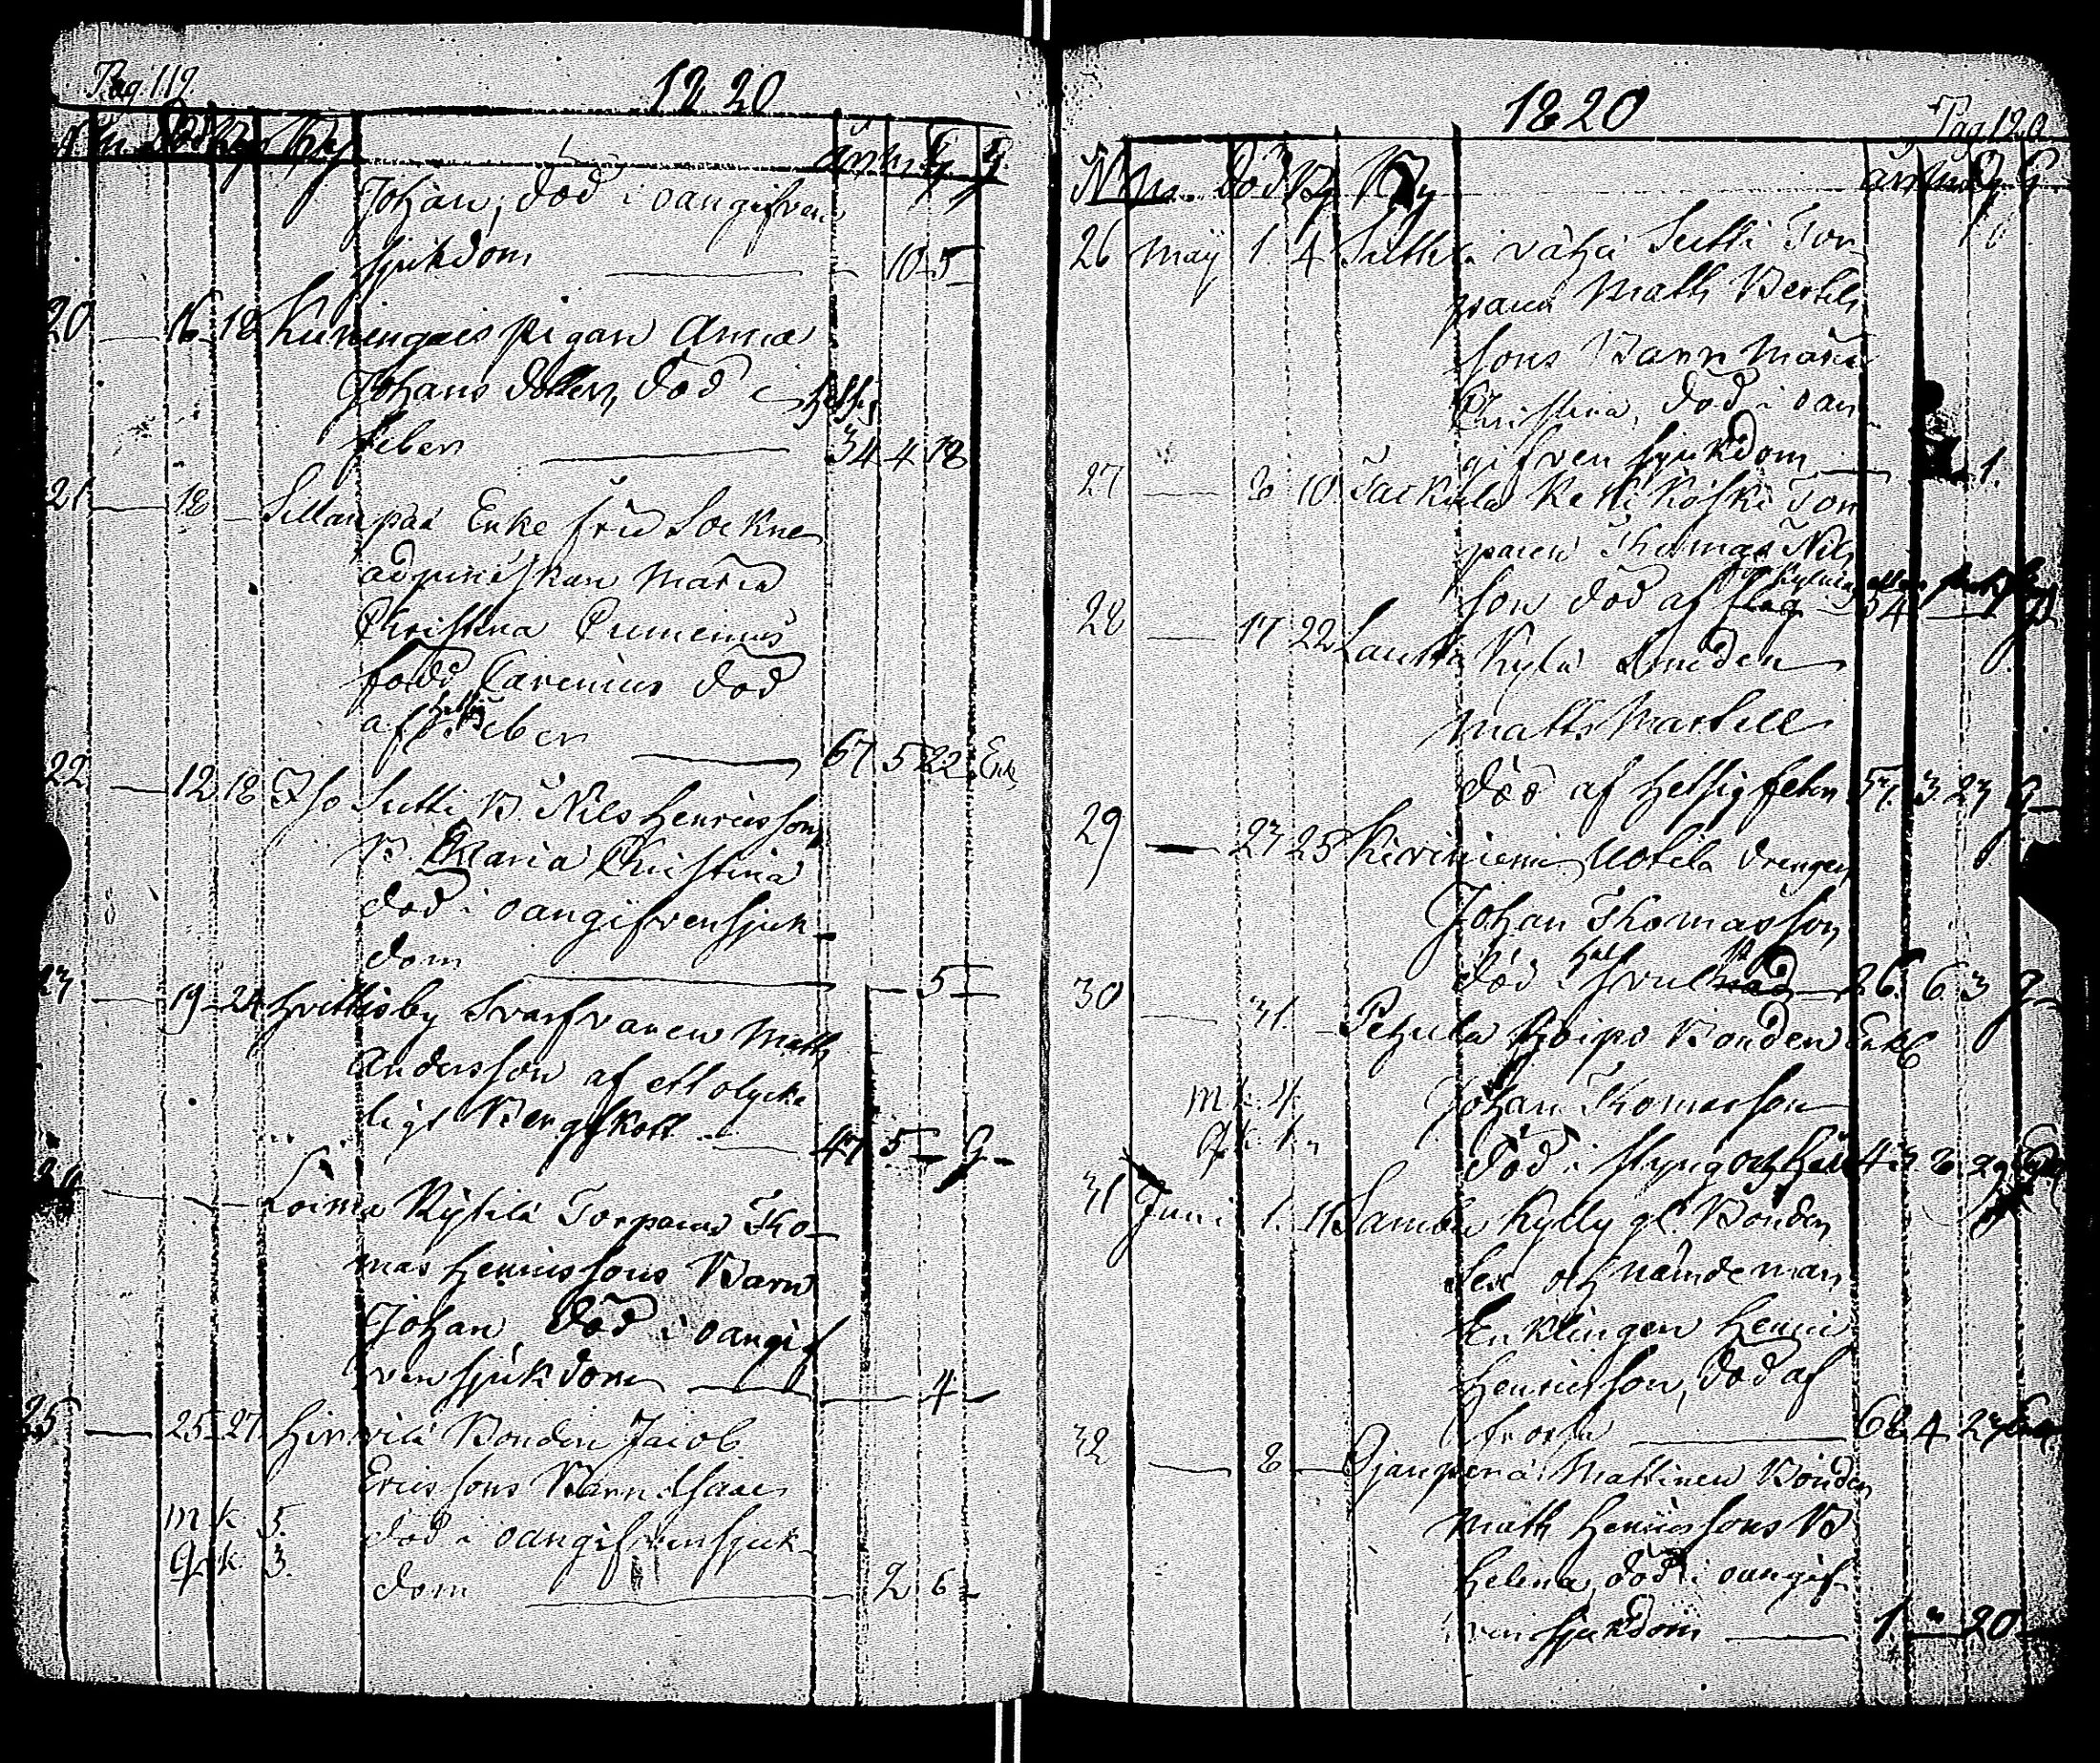 Pag. 119.
1820
N Mn. Död Bg By år M D G
Johan, död i oangifven
sjukdom — 10 5
20 — 16 18 Kuningais pigan Anna
Johans dotter, död i hettsig
feber — 34 4 18
21 — 18 — Sillanpää Enke fru Sockne
adjunkskan Maria
Christina Cumenius
född Carenius död
af hettsig feber — 67 5 22 Enk
22 — 12 18 Iso Sutti B. Nils Henricssons
B. Maria Christina
död i oangifven sjuk-
dom — 5 —
23 — 19 24 Hvittisby Svarfvaren Matts
Andersson af ett olycke
ligt Bergskott — 47 5 — G —
24 — — Loima Kÿtilä Torparens Tho-
mas Henricssons Barn
Johan, död i oangif
ven sjukdom — 4 —
25 — 25 27 Hirvilä Bonden Jacob
Ericssons Barn Isaac
M k. 5. död i oangifven sjuk-
Q k. 3. dom — 2 6 —
1820
Pag. 120
N Mn. Död Bg By år M D G
26 Maÿ 1. 4 Sutti Vähä Sutti Tor-
parens Matts Bertils
sons Barn Maria
Christina, död i oan
gifven sjukdom — 1.
27 — 8 10 Taskula Keski Koski Tor
paren Thomas Nils
son död af 54 —
28 — 17 22 Lautta Kylä Smeden
Matts Martell
död af hetsig feber 57. 3 27 G —
29 — 23 25 Kiviniemi Uotila drengen
Johan Thomasson
död i 26. 6 3 G —
30 — 31. — Pehula Bonden Enk
M k. 4. Johan Thomasson
Q k. 1. död i styng och håll 43 8 29
31 Juni 1. 11 Sambu Kylly gl. Bonden
Sex och nämdeman
Enklingen Henric
Henricsson, död af
frossa — 68 4 27 Enk
32 — 8 — Ojanperä Mattinen Bonden
Matts Henricssons B
Helena, död i oangif
ven sjukdom — 1. " 20